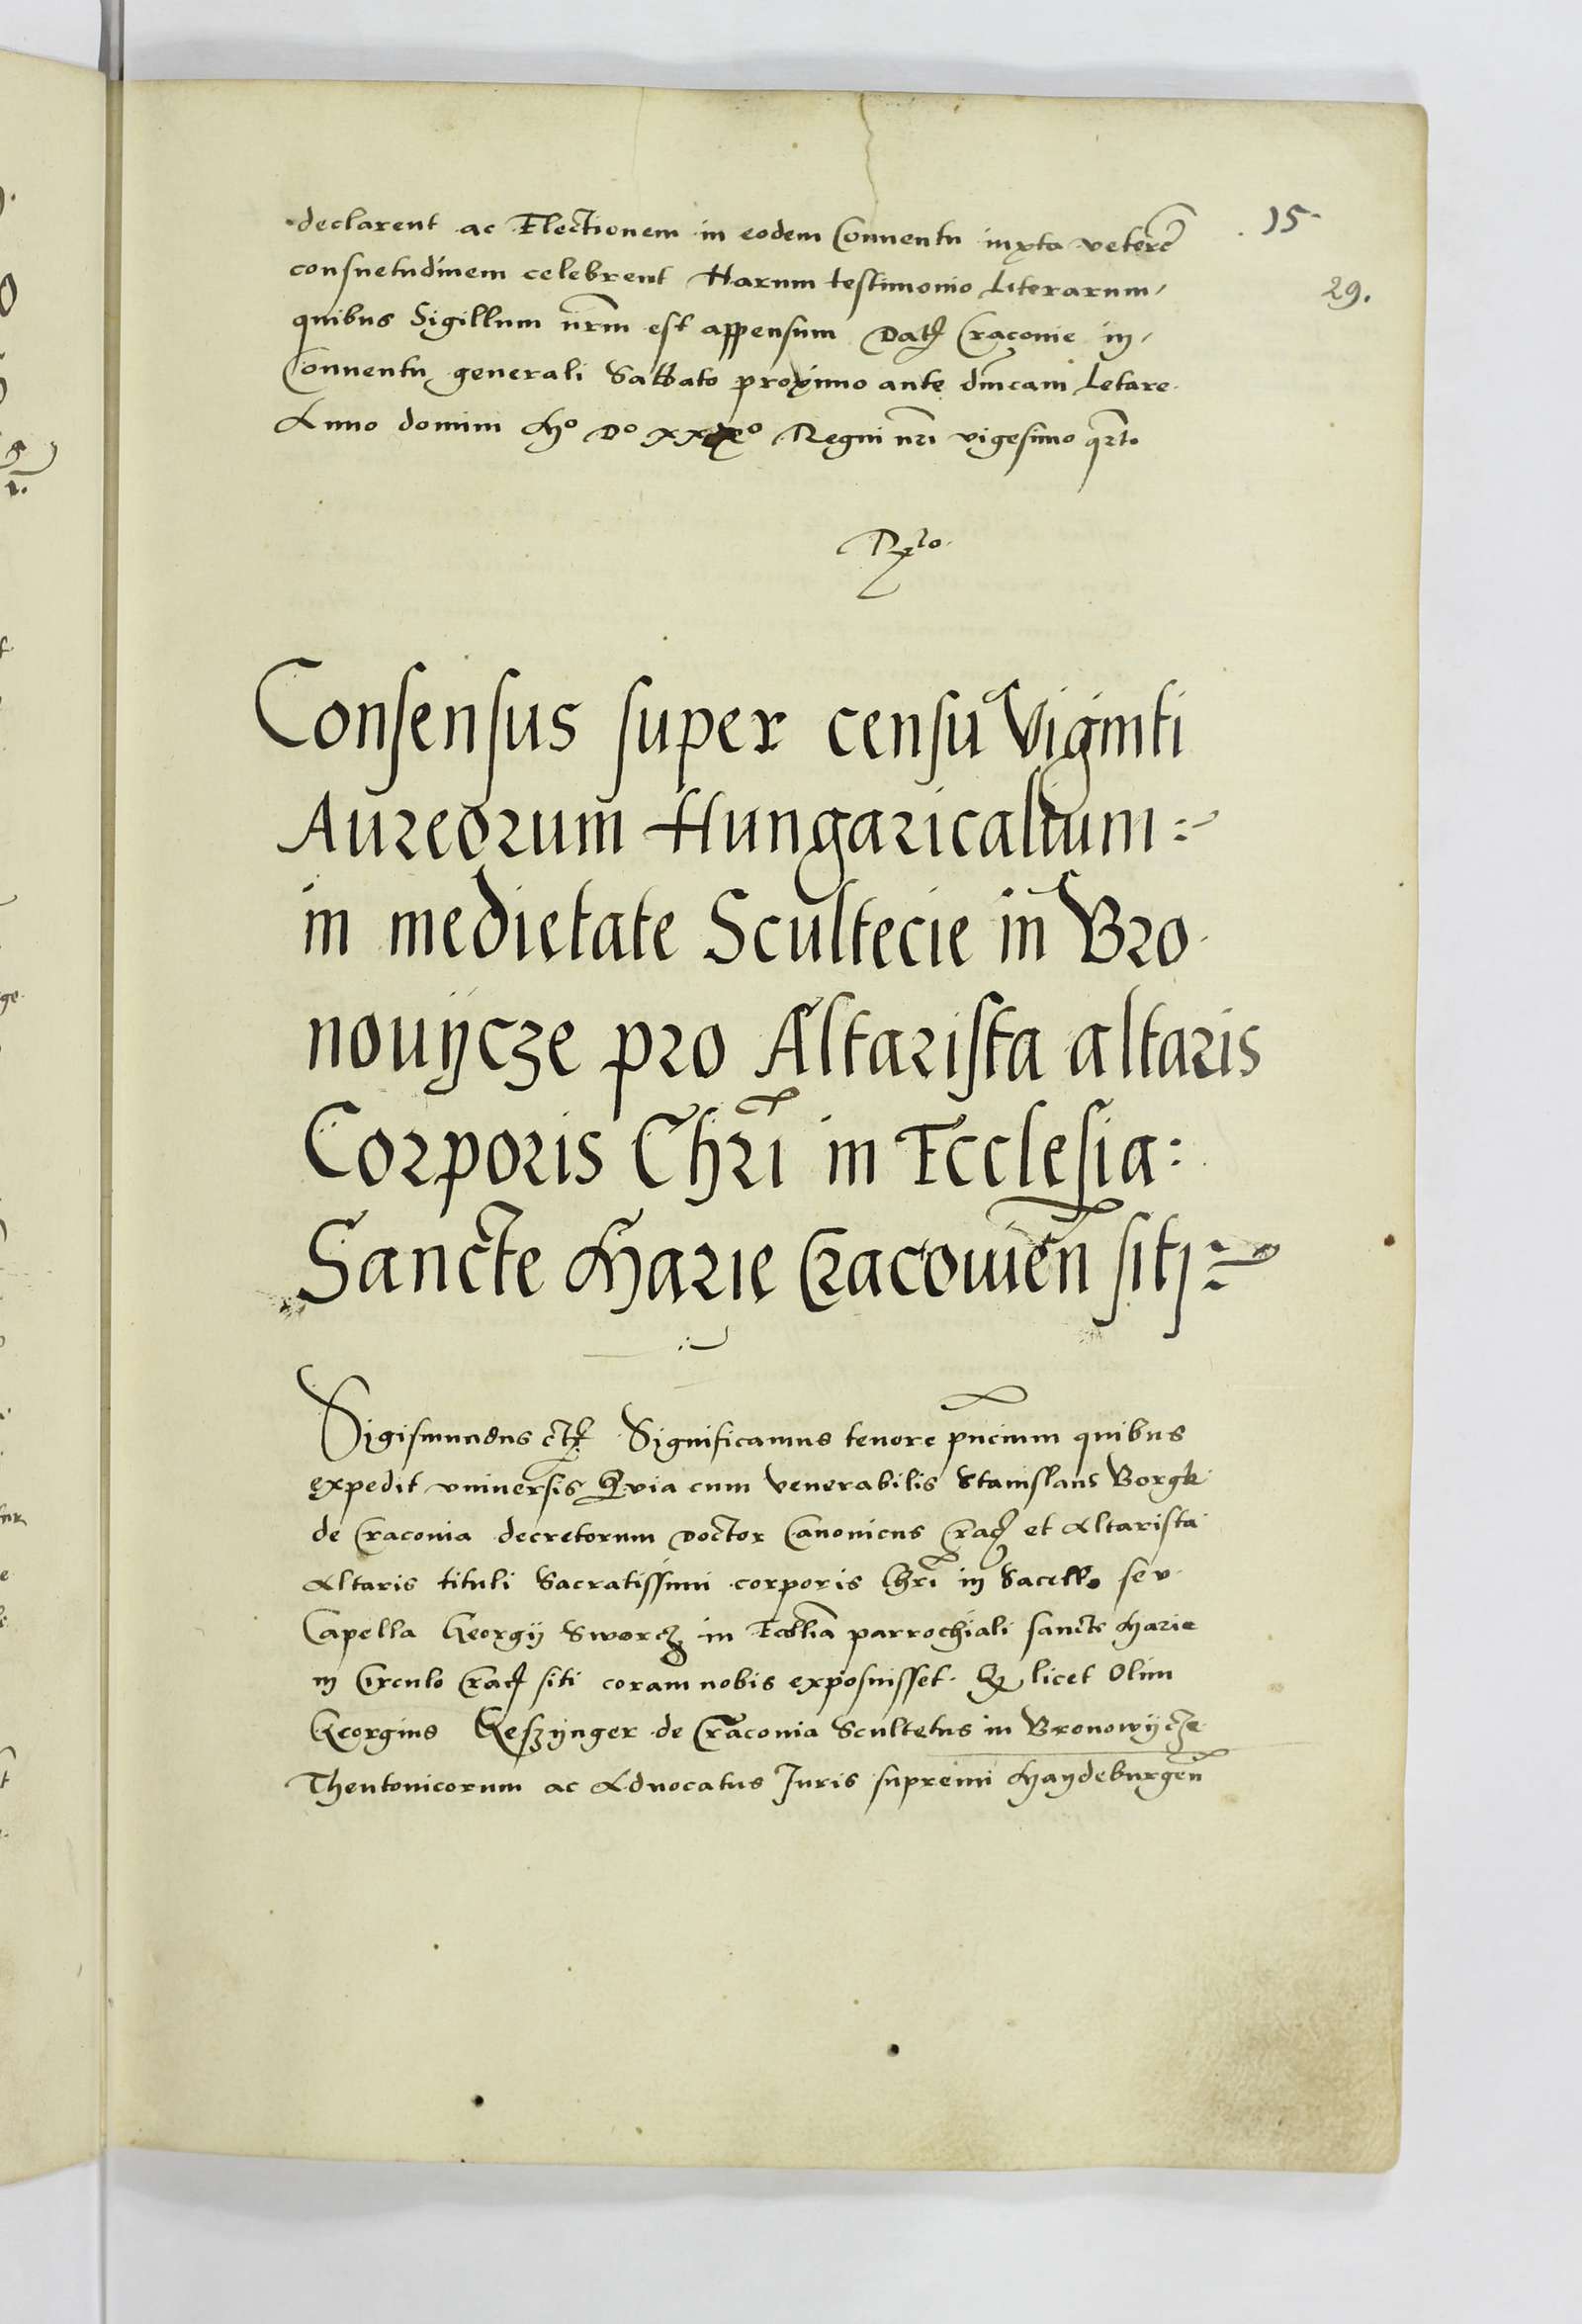 declarent ac Electionem in eodem Conuentu iuxta veterē
consuetudinem celebrent Harum testimonio Literarum,
quibus Sigillum nr̄m est appensum Datꝭ Cracouie in,
Conuentu generali Sabbato proximo ante dn̄icam Letare.
Anno domini Mº Dº Regni nr̄i vigesimo qrt̄o
15.
29.
Consensus super censu Viginti
Aureorum Hungaricalium
in medietate Scultecie in Bro
nouÿcze pro Altarista altaris
Corporis Chr̄i in Ecclesia:
Sancte Marie Cracouien̄ sitj
Sigismundus ctꝭ Significamus tenore pn̄cium quibus
expedit vniuersis Quia cum venerabilis Stanislaus Borgk
de Craconia decretorum Doctor Canonicus Cracꝭ et Altarista
Altaris tituli Sacratissimi corporis Chr̄i in Sacello seu
Capella Georgÿ Sworcz in Eccl̄ia parrochiali sancte Marie
in Circulo Cracꝭ siti coram nobis exposuisset. Qꝫ licet Olim
Georgius Keszÿnger de Cracouia Scultetus in Bronowÿcze
Theutonicorum ac Aduocatus Juris supremi Maydeburgen̄